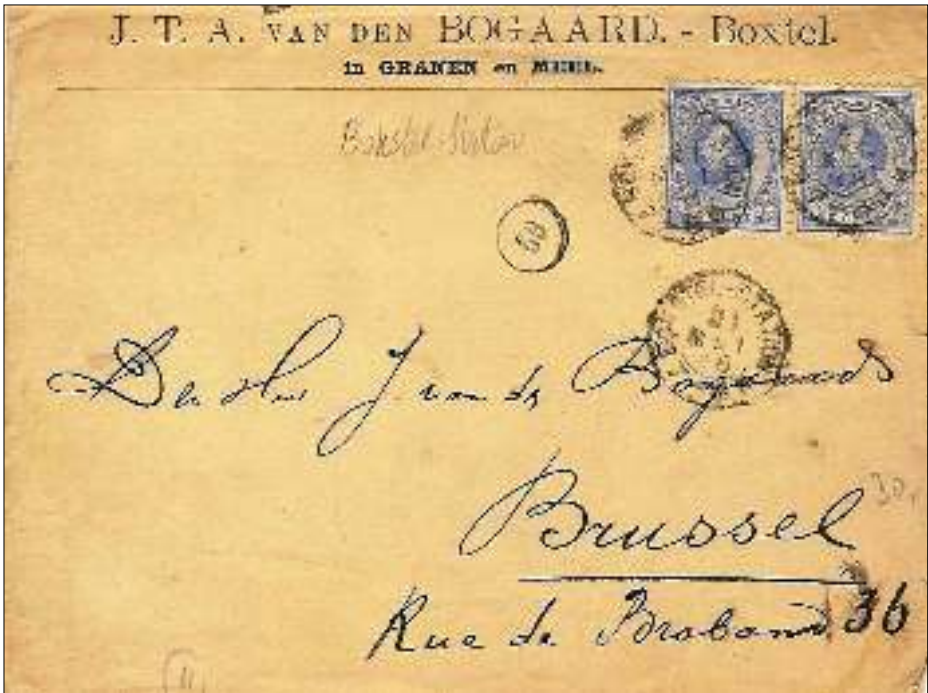 J. T. A. VAN DEN BOGAARD. - Boxtel.
in GRANEN en MEEL.
Boxtel-Station
50
De Hr J van de Bogaard
Brussel
30
Rue de Braband 36